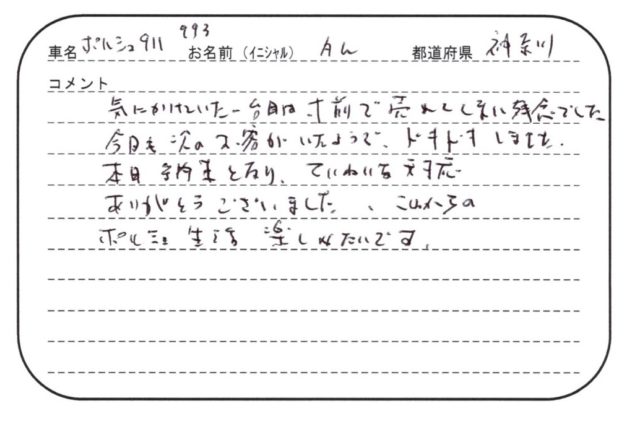 車名 ポルシェ911 993 お名前（イニシャル） 都道府県 神奈川
コメント
気にかけていた一台目は寸前で売れてしまい残念でした
今回も次のお客がいたようで、ドキドキしました。
本日納車となり、ていねいな対応
ありがとうございました、これからの
ポルシェ生活楽しみたいです。